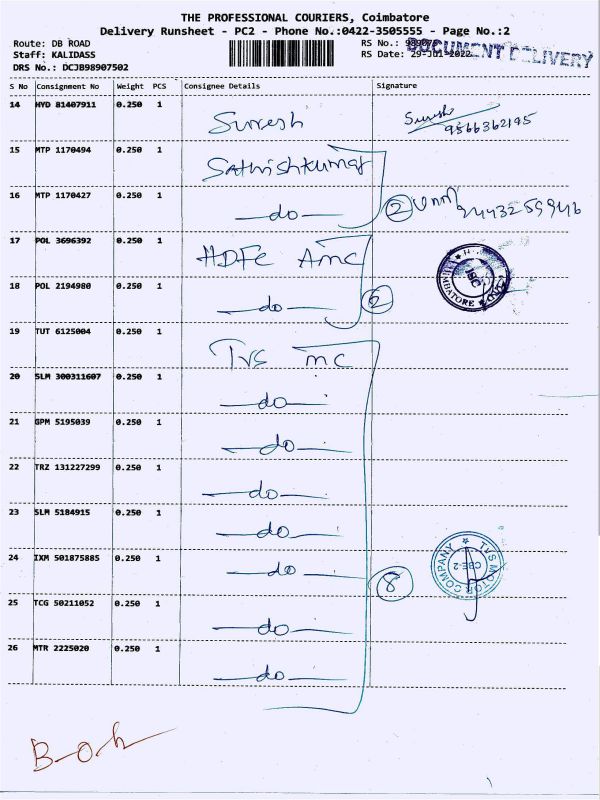 THE PROFESSIONAL COURIERS, Coimbatore
Delivery Runsheet - PC2 - Phone No.:0422-3505555 - Page No.:2
Route: DB ROAD
Staff: KALIDASS
DRS No.: DCJB98907502
RS No.:
RS Date: 29-Jul-2022
DOCUMENT DELIVERY
S No Consignment No Weight PCS Consignee Details Signature
14 HYD 81407911 0.250 1 Suresh Suresh
9566362195
15 MTP 1170494 0.250 1 Sathishkumar
16 MTP 1170427 0.250 1 —do— 2
17 POL 3696392 0.250 1 HDFC AMC
18 POL 2194980 0.250 1 —do—
19 TUT 6125004 0.250 1 TVS MC
20 SLM 300311607 0.250 1 —do—
21 GPM 5195039 0.250 1 —do—
22 TRZ 131227299 0.250 1 —do—
23 SLM 5184915 0.250 1 —do—
24 IXM 501875885 0.250 1 —do— 8
TVS MOTOR COMPANY
CBE-2
25 TCG 50211052 0.250 1 —do—
26 MTR 2225020 0.250 1 —do—